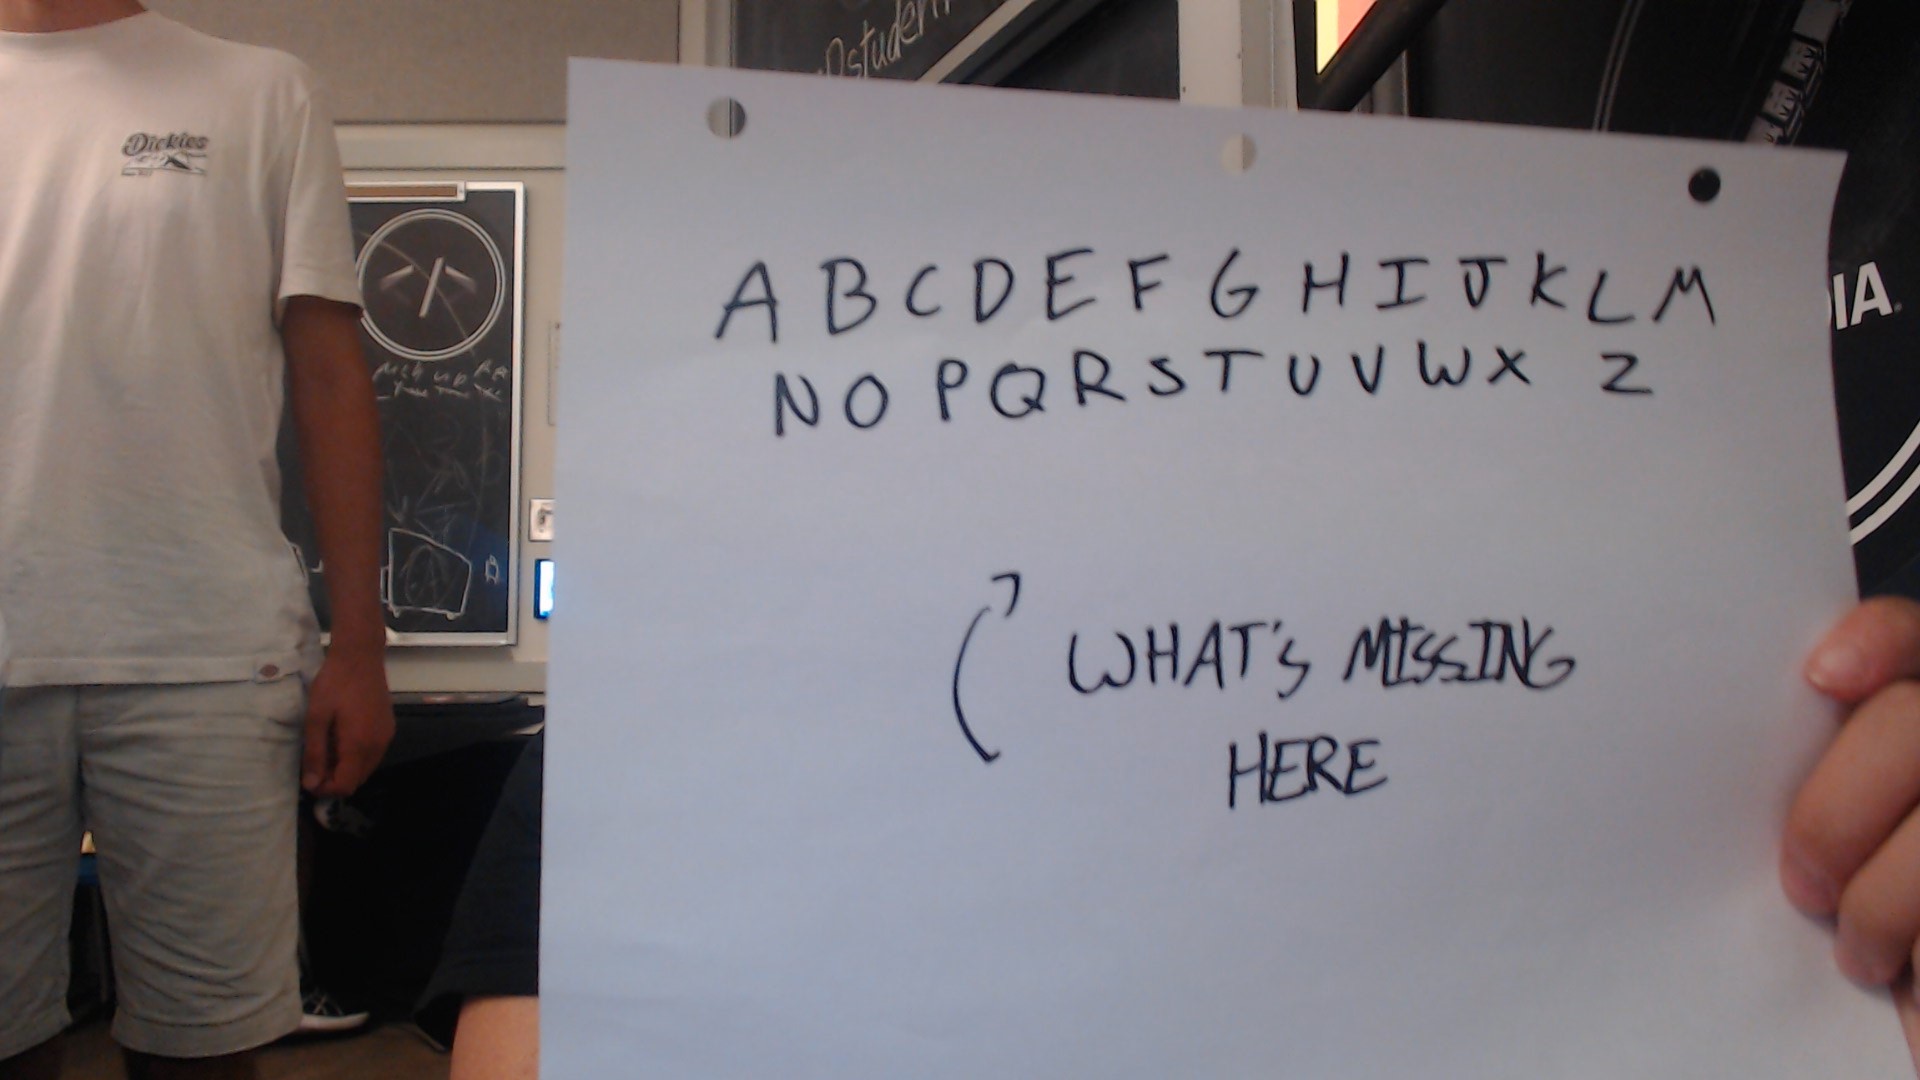 Dickies
A B C D E F G H I J K L M
N O P Q R S T U V W X Z
WHAT'S MISSING
HERE